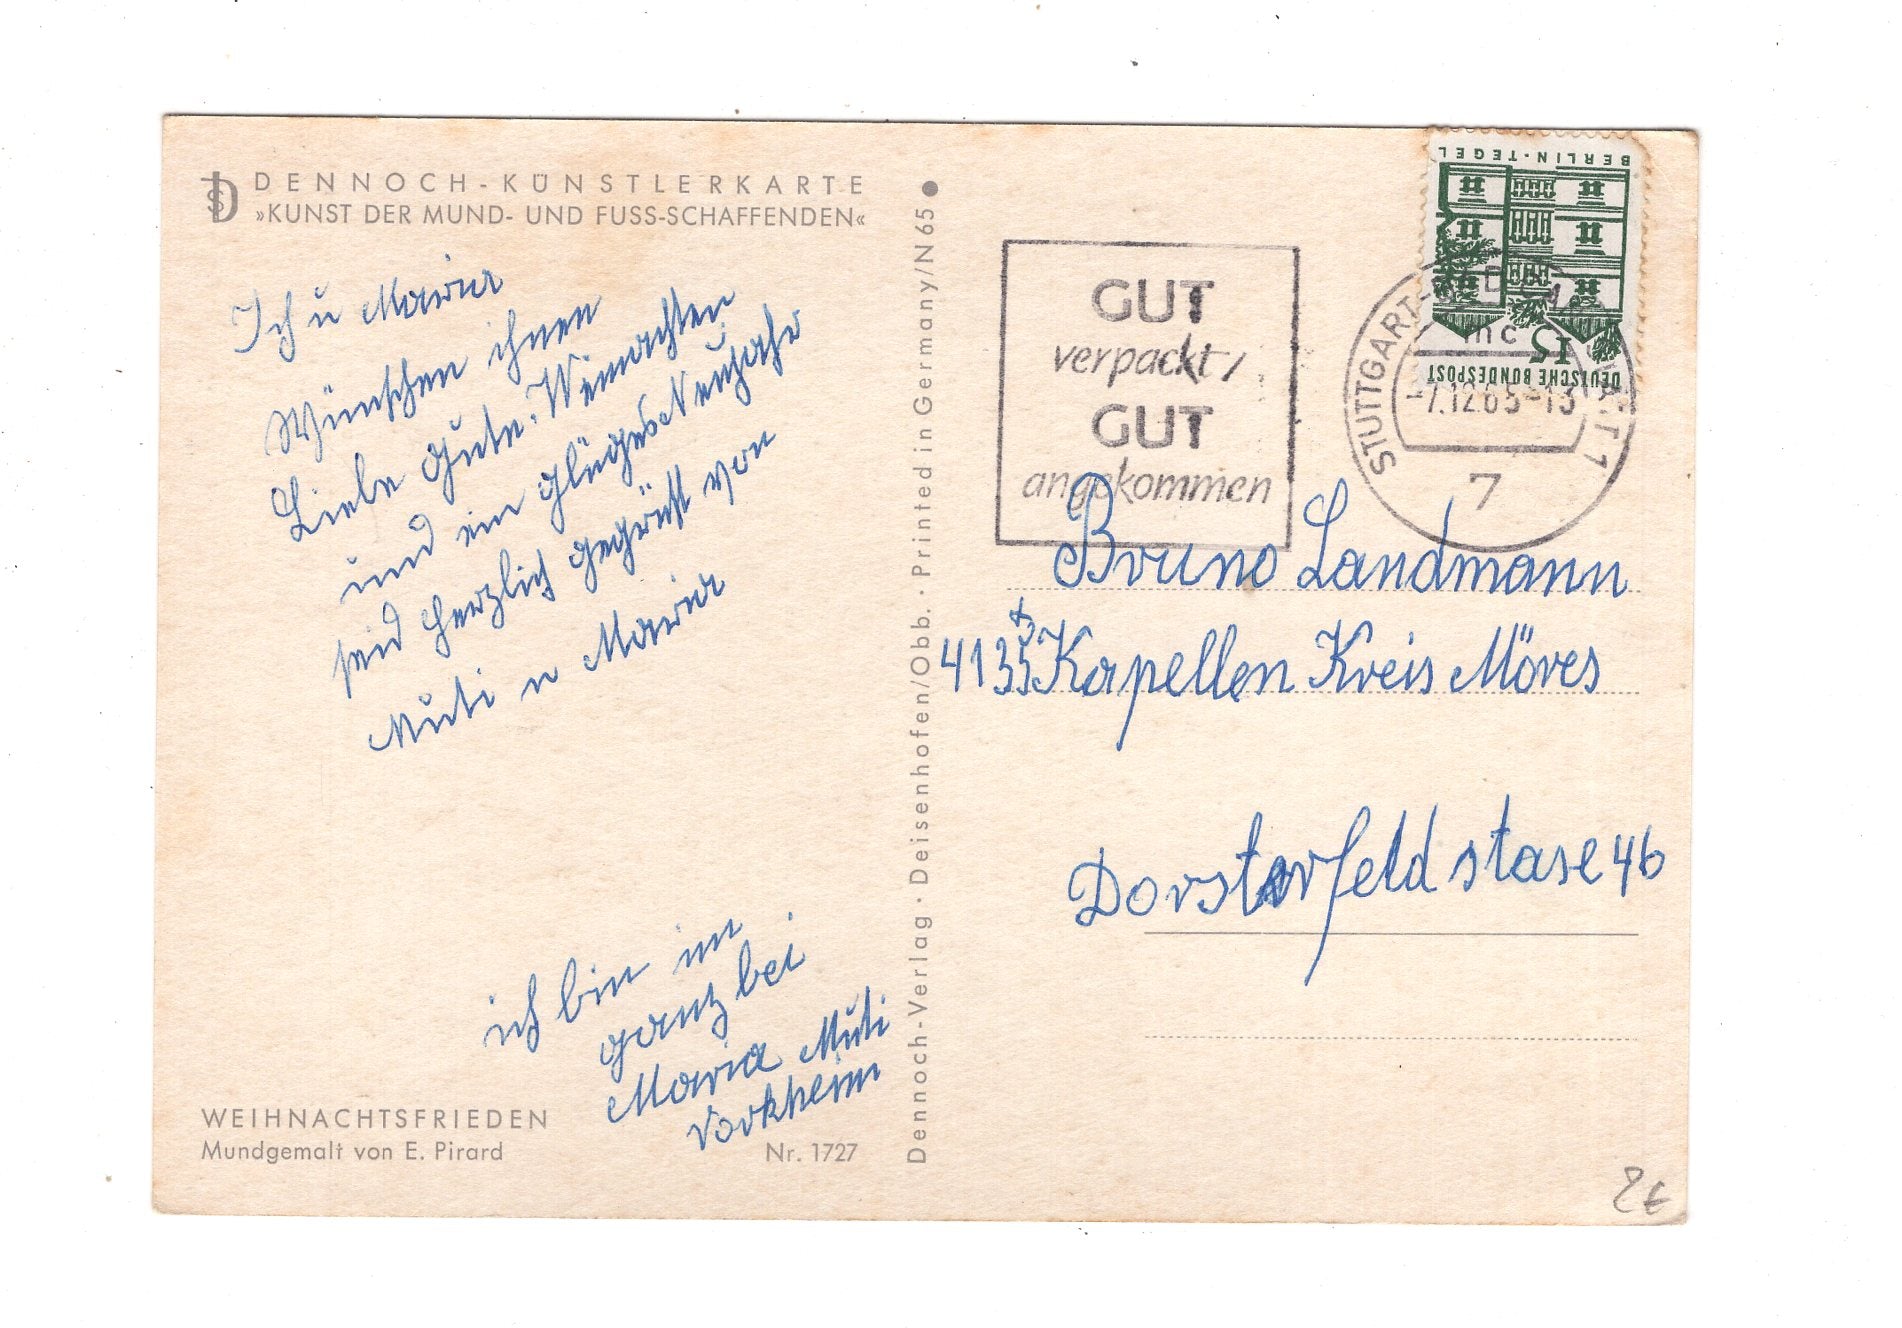 DENNOCH-KÜNSTLERKARTE
»KUNST DER MUND- UND FUSS-SCHAFFENDEN«
Ich u Maria
Wünschen ihnen
Liebe Gute. Weinachten
und ein glüges Neujahr
seid herzlich gegrüßt von
Muti u Maria
ich bin im
ganz bei
Maria Muti
WEIHNACHTSFRIEDEN
Mundgemalt von E. Pirard
Nr. 1727
Dennoch-Verlag · Deisenhofen/Obb. · Printed in Germany/N 65
GUT
verpackt,
GUT
angekommen
BERLIN-TEGEL
15
DEUTSCHE BUNDESPOST
STUTTGART-
mc
-7.12.65-13
7
Bruno Landmann
4135 Kapellen Kreis Möres
Dorsterfeld stase 46
2€